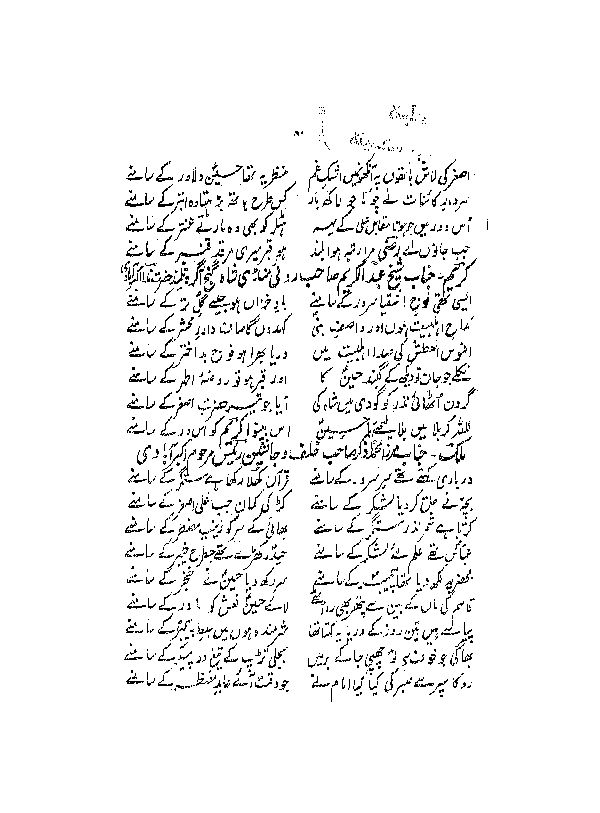 اصغر کی لاش ہاتھوں پہ آنکھوں میں اشک غم منظر یہ تھا حسین دلاور کے سامنے
سردار کائنات نے چو با کس طرح ہاتھ کے سامنے
اس دور میں جو ہوتا مقابل علی کے ہٹلر کو بھی وہ مارتے عنتر کے سامنے
جب جاؤں لے رضی مرا رتبہ ہو بلند ہو قبر میری مرقد قنبر کے سامنے
کریم - جناب شیخ عبدالکریم صاحب شاہ گنج آگرہ تلمیذ حضرت
ایسی تھی فوج اشقیا سرور کے سامنے باد خزاں ہو جیسے گل تر کے سامنے
مداح اہلبیت ہوں اور واصف نبی کہدوں گا صاف داور محشر کے سامنے
افسوس العطش کی صدا اہلبیت میں دریا بھرا ہو فوج بد اختر کے سامنے
نکلے جو جان تو دیکھ کے گنبد حسین کا اور قبر ہو تو روضۂ اطہر کے سامنے
گردن اٹھائی نذر کو گودی میں شاہ کی آیا جو تیر حضرت اصغر کے سامنے
للہ کربلا میں بلا لیجئے یا حسین اس بینوا کریم کو اس در کے سامنے
مالک - جناب مرزا صاحب خلف و جانشین رئیس مرحوم اکبرآبادی
درباری کہتے تھے سر سرور کے سامنے قرآن کھلا رکھا ہے ستمگر کے سامنے
بچے نے حلق کر دیا لشکر کے سامنے کڑکی کمان جب علی اصغر کے سامنے
کرتا ہے شمر نذر ستمگر کے سامنے بھائی کے سر کو زینب مضطر کے سامنے
عباس تھے علم لئے لشکر کے سامنے حیدر کھڑے تھے جسطرح خیبر کے سامنے
کے سامنے سر رکھ دیا حسین نے خنجر کے سامنے
قاسم کی ماں کے بین سے پتھر بھی رو دئے لائے حسین نعش کو مادر کے سامنے
پیاسے ہیں تین روز کے دریا پہ کہتا تھا شرمندہ ہوں میں سبط پیمبر کے سامنے
بھاگی جو خوف سے تو چھپی جا کے بجلی تڑپ کے تیغ دو پیکر کے سامنے
روکا سپر سے صبر کی کیا کیا امام نے جو وقت آئے عابد مضطر کے سامنے